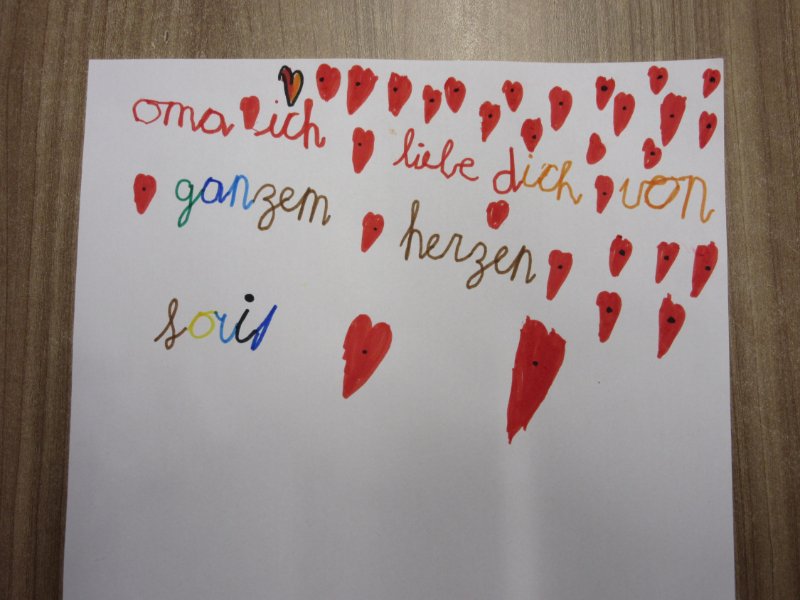 oma ich
liebe dich von
ganzem
herzen